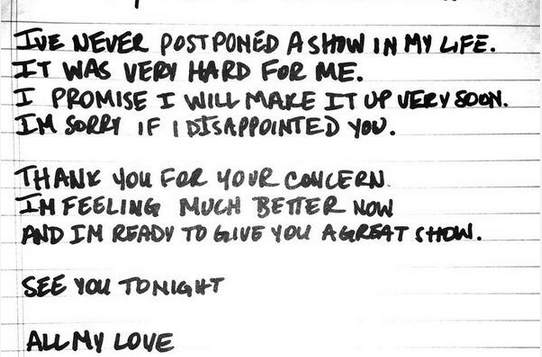 I'VE NEVER POSTPONED A SHOW IN MY LIFE.
IT WAS VERY HARD FOR ME.
I PROMISE I WILL MAKE IT UP VERY SOON.
IM SORRY IF I DISAPPOINTED YOU.
THANK YOU FOR YOUR CONCERN.
IM FEELING MUCH BETTER NOW
AND IM READY TO GIVE YOU A GREAT SHOW.
SEE YOU TONIGHT
ALL MY LOVE